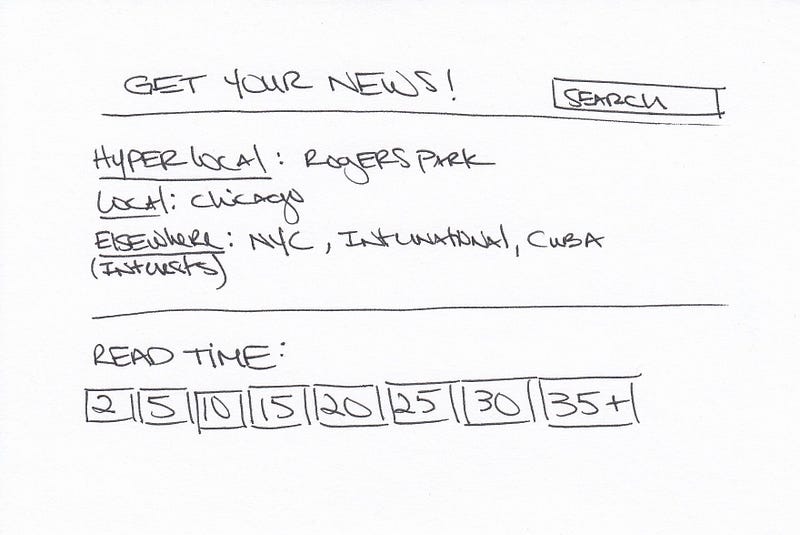 GET YOUR NEWS!
SEARCH
HYPERLOCAL: ROGERS PARK
LOCAL: Chicago
ELSEWHERE: NYC, INTERNATIONAL, CUBA
(INTERESTS)
READ TIME:
2 5 10 15 20 25 30 35+